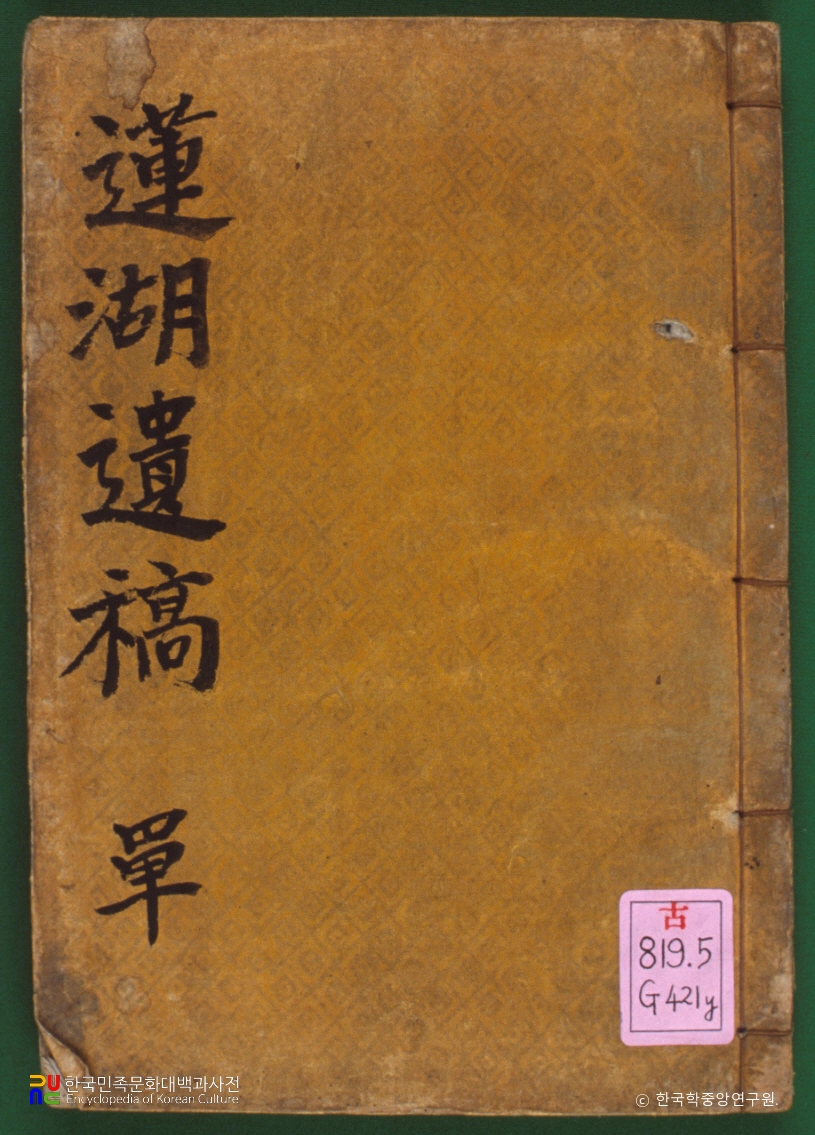 蓮湖遺稿 單
古
819.5
G421y
한국민족문화대백과사전
Encyclopedia of Korean Culture
© 한국학중앙연구원.